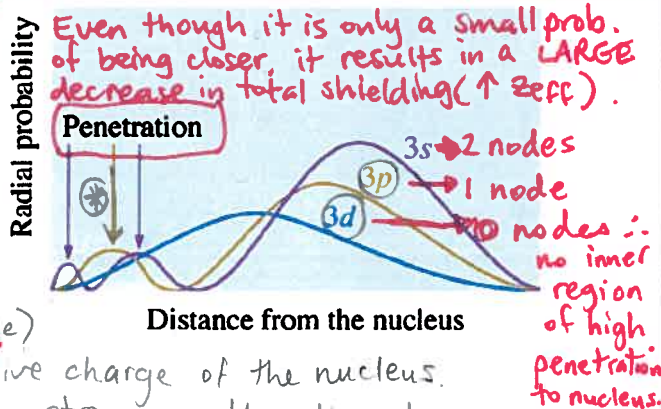 Even though it is only a small prob.
of being closer, it results in a LARGE
decrease in total shielding (↑ Zeff).
Radial probability
Penetration
3s → 2 nodes
3p → 1 node
3d → 0 nodes ∴
no inner
region
of high
penetration
to nucleus.
Distance from the nucleus
e)
ive charge of the nucleus.